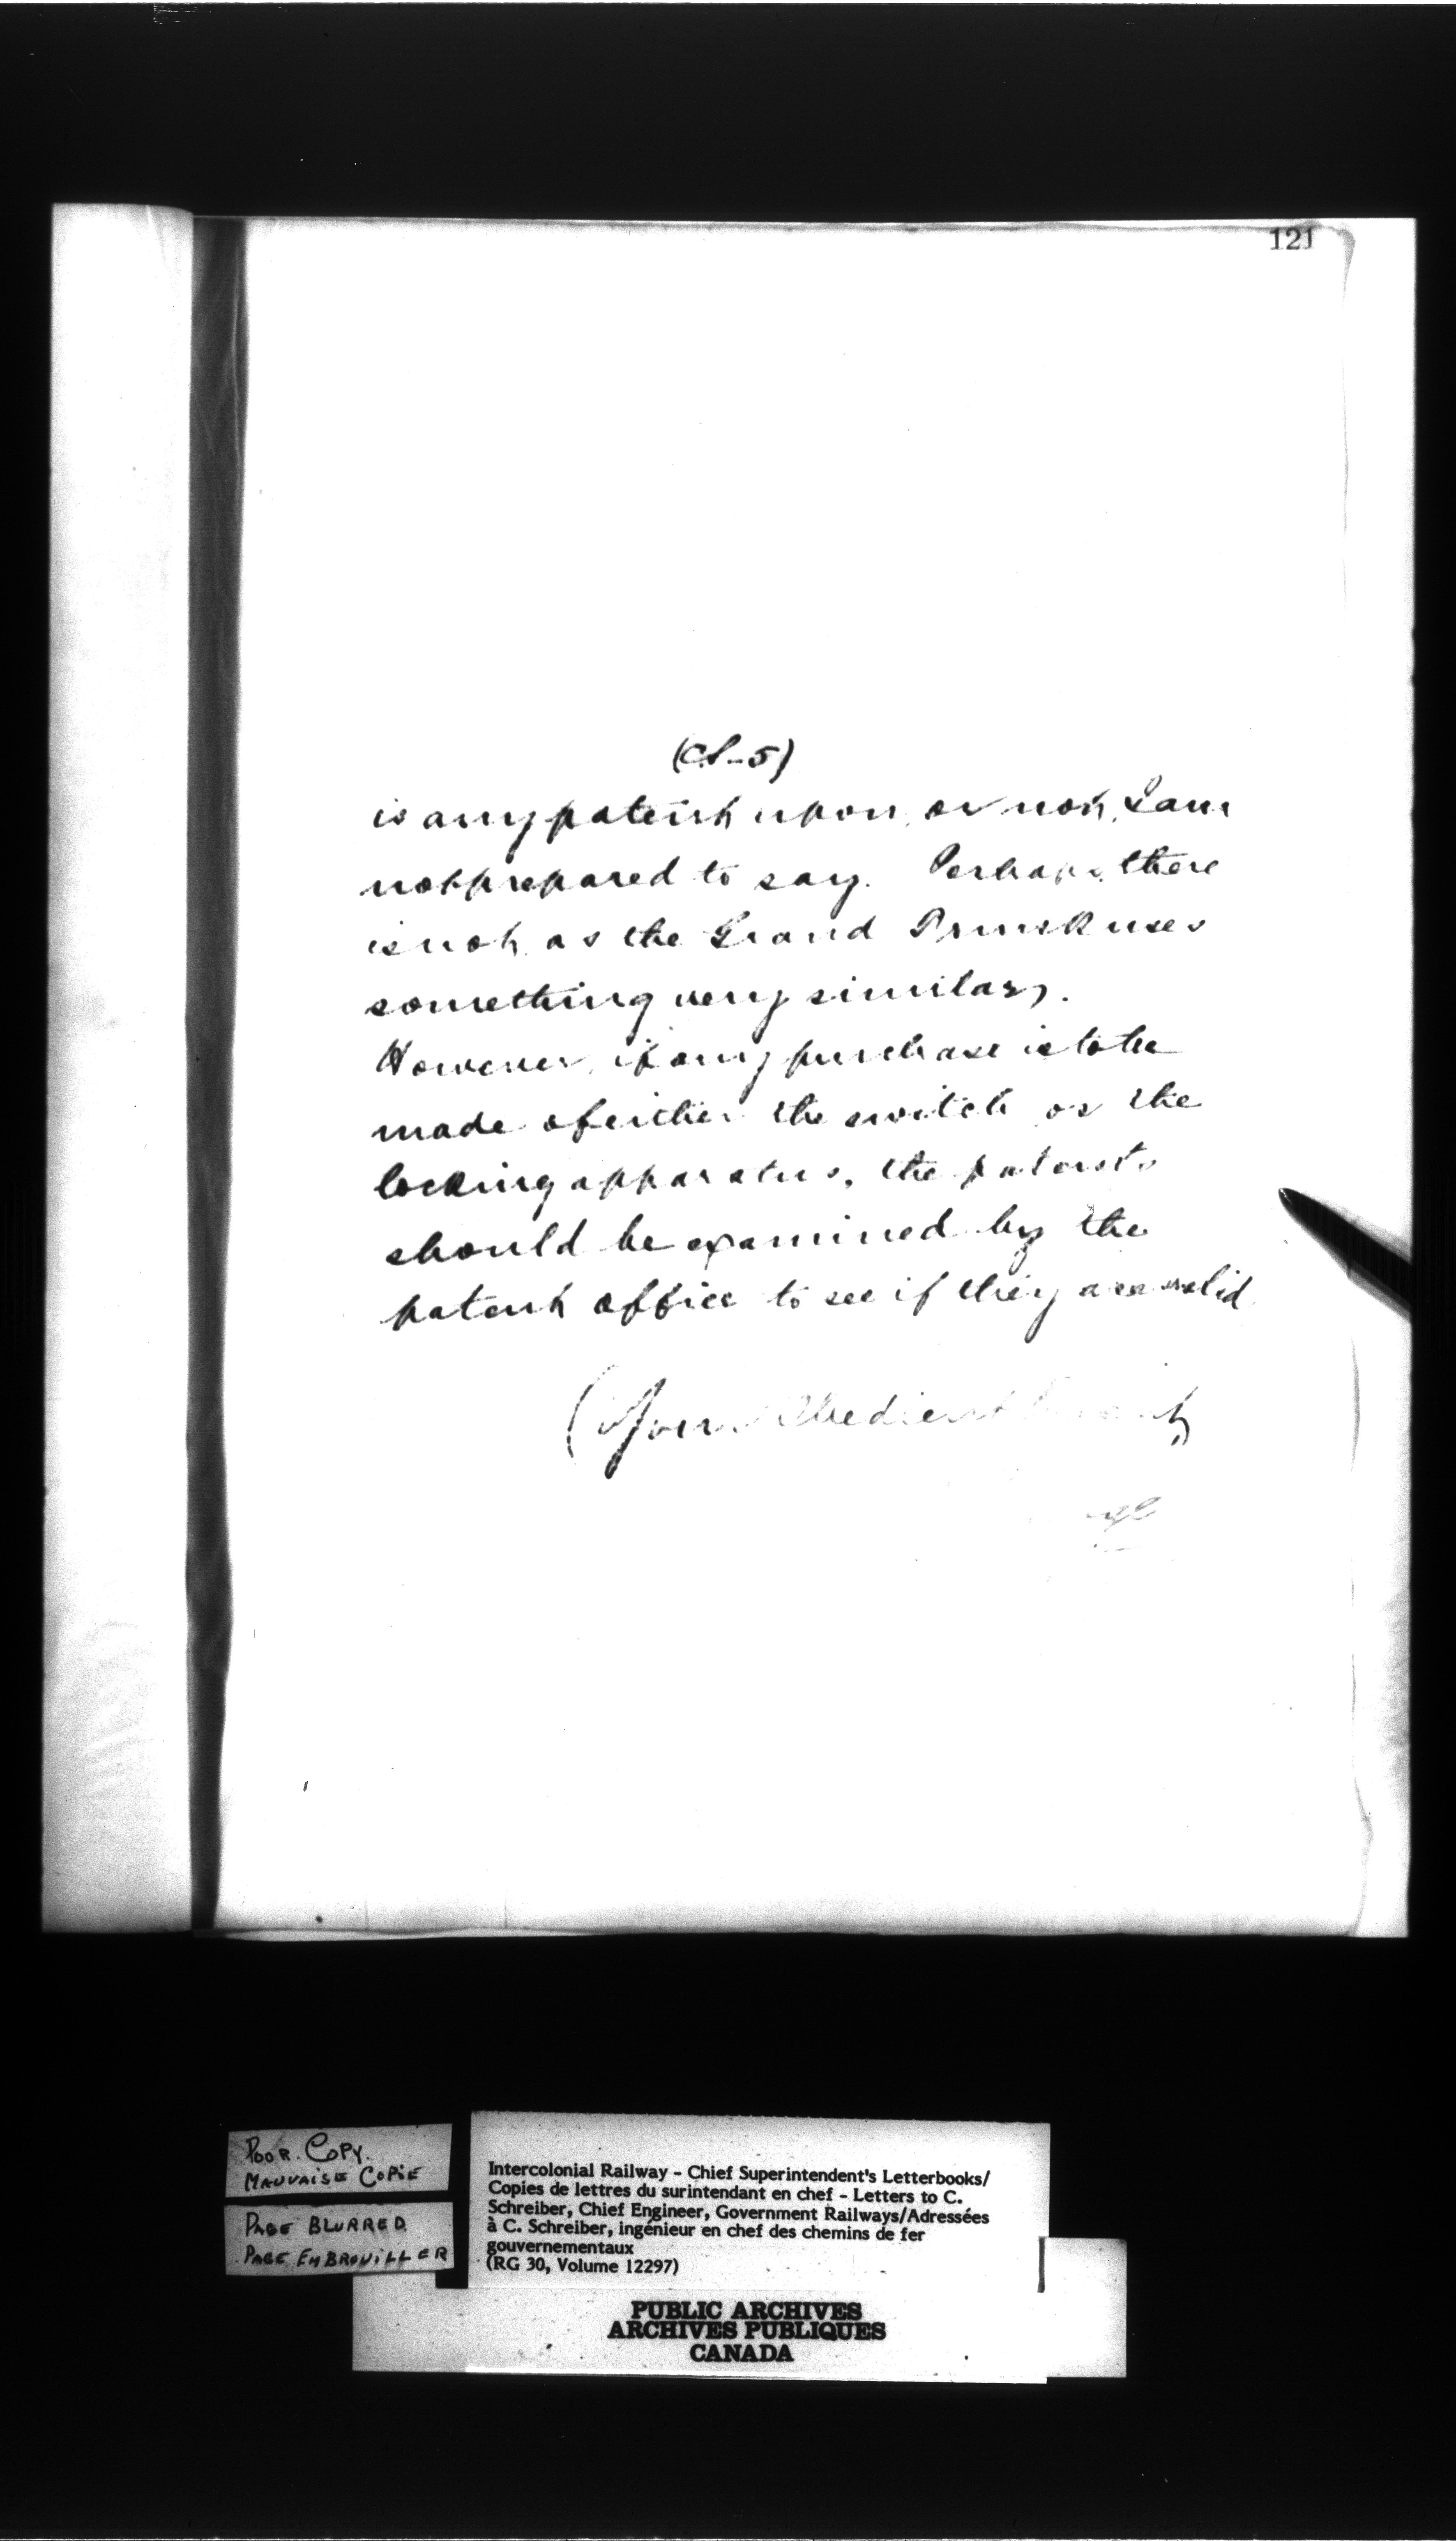 121
(C.S-5)
is any patent upon, or not, I am
not prepared to say. Perhaps there
is not as the Grand Trunk uses
something very similar,.
However, if any purchase is to be
made of either the switch or the
locking apparatus, the patents
should be examined by the
patent office to see if they are valid
Your Obedient Servant
POOR. COPY.
MAUVAISE COPIE
PAGE BLURRED.
PAGE EMBROUILLER
Intercolonial Railway - Chief Superintendent's Letterbooks/
Copies de lettres du surintendant en chef - Letters to C.
Schreiber, Chief Engineer, Government Railways/Adressées
à C. Schreiber, ingénieur en chef des chemins de fer
gouvernementaux
(RG 30, Volume 12297)
PUBLIC ARCHIVES
ARCHIVES PUBLIQUES
CANADA